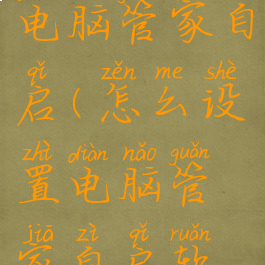 电脑管家自
qǐ zěn me shè
启(怎么设
zhì diàn nǎo guǎn
置电脑管
jiā zì qǐ ruǎn
家自启软